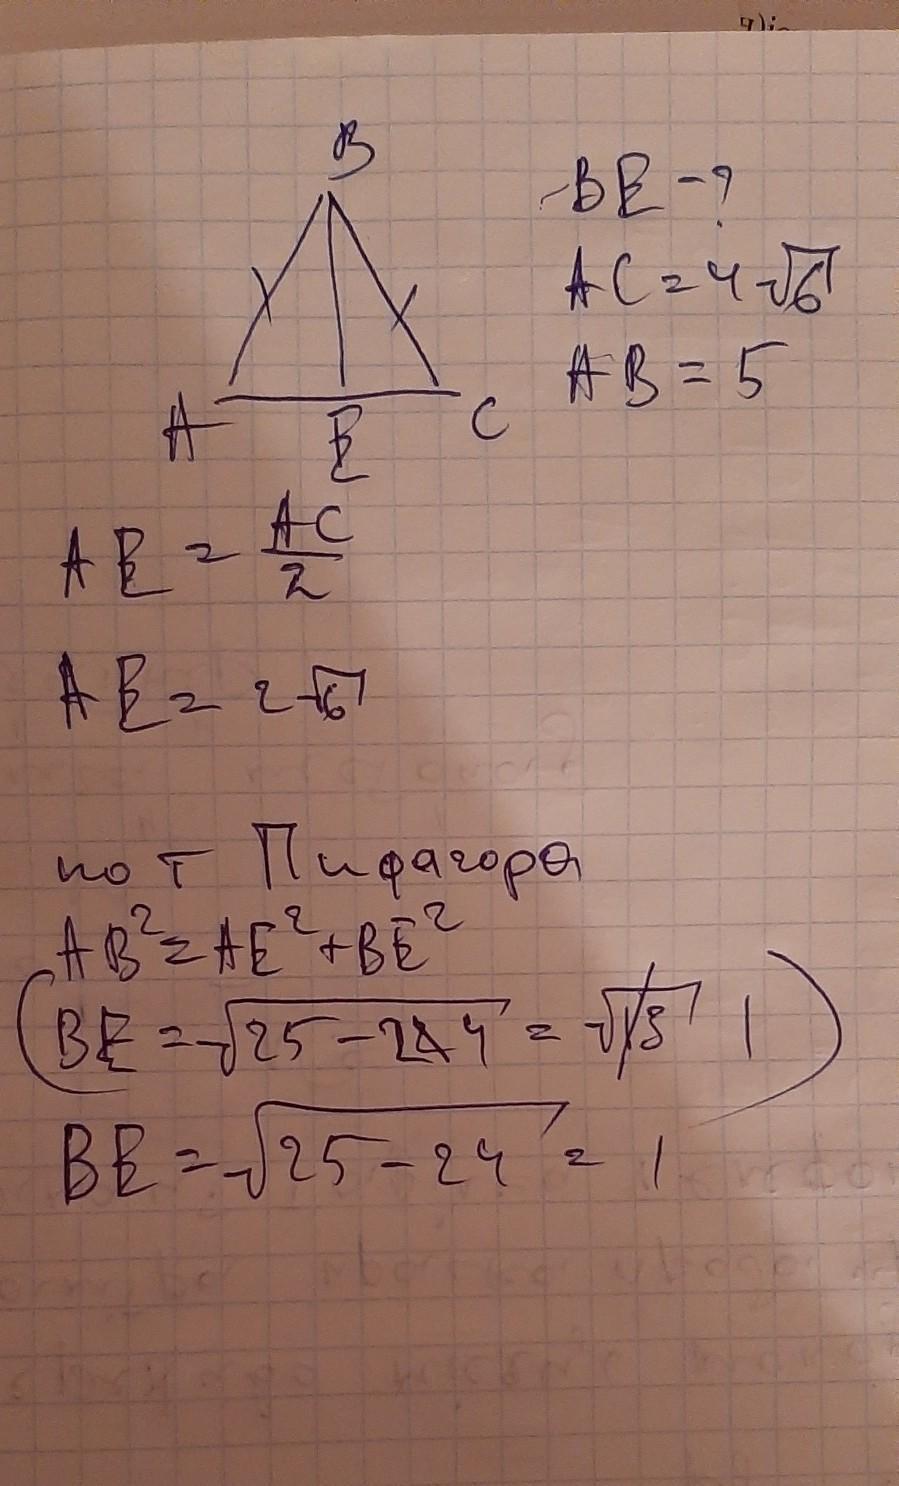 B
BE - ?
AC = 4√6
AB = 5
A E C
AE = AC/2
AE = 2√6
по т Пифагора
AB² = AE² + BE²
(BE = √25 - 24 = 1)
BE = √25 - 24 = 1